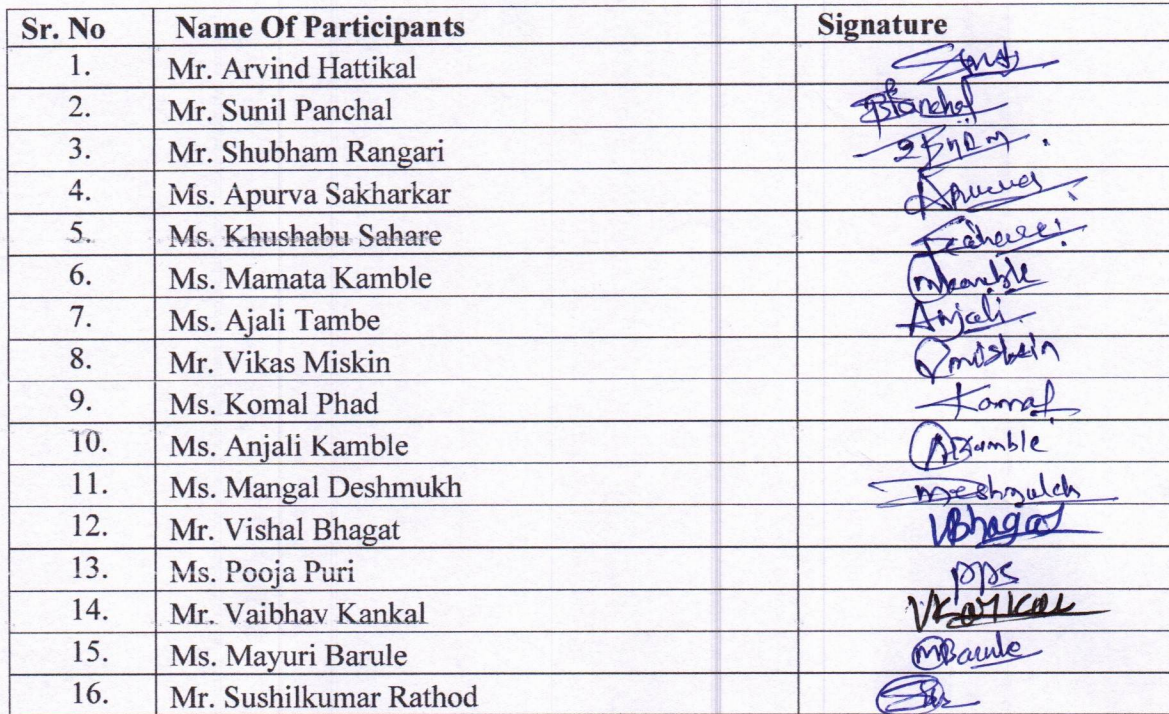 Sr. No Name Of Participants Signature
1. Mr. Arvind Hattikal
2. Mr. Sunil Panchal BPanchal
3. Mr. Shubham Rangari
4. Ms. Apurva Sakharkar Apurva
5. Ms. Khushabu Sahare
6. Ms. Mamata Kamble mkamble
7. Ms. Ajali Tambe Anjali
8. Mr. Vikas Miskin Vmiskin
9. Ms. Komal Phad Komal
10. Ms. Anjali Kamble AKamble
11. Ms. Mangal Deshmukh
12. Mr. Vishal Bhagat VBhagat
13. Ms. Pooja Puri pps
14. Mr. Vaibhav Kankal VKankal
15. Ms. Mayuri Barule MBarule
16. Mr. Sushilkumar Rathod